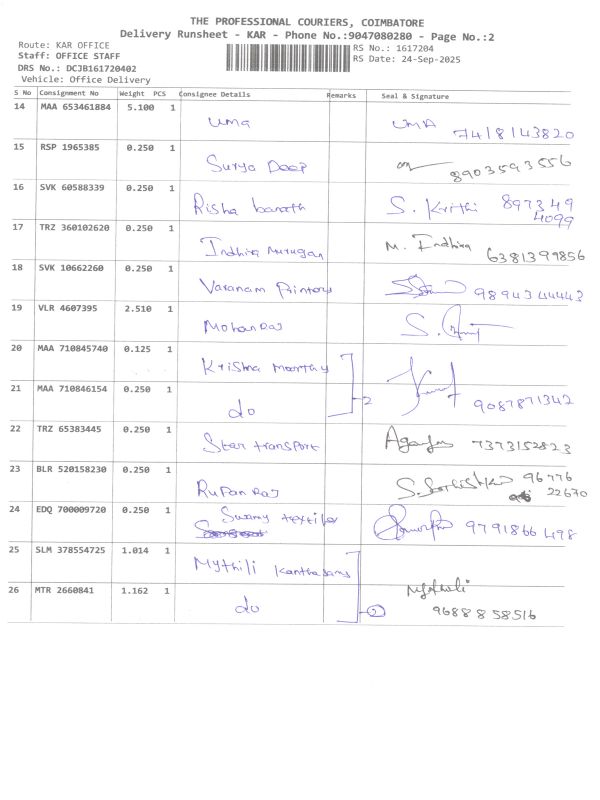 THE PROFESSIONAL COURIERS, COIMBATORE
Delivery Runsheet - KAR - Phone No.:9047080280 - Page No.:2
Route: KAR OFFICE
Staff: OFFICE STAFF
DRS No.: DCJB161720402
Vehicle: Office Delivery
RS No.: 1617204
RS Date: 24-Sep-2025
S No Consignment No Weight PCS Consignee Details Remarks Seal & Signature
14 MAA 653461884 5.100 1 Uma UMA 7418143820
15 RSP 1965385 0.250 1 Surya Deep 8903593556
16 SVK 60588339 0.250 1 Risha barath S. Krithi 897349
4099
17 TRZ 360102620 0.250 1 Indhira Murugan M. Indhira 6381399856
18 SVK 10662260 0.250 1 Varanam Printers 9894344443
19 VLR 4607395 2.510 1 Mohan Raj S.
20 MAA 710845740 0.125 1 Krishna moorthy
21 MAA 710846154 0.250 1 do 2 9087871342
22 TRZ 65383445 0.250 1 Star transport 7373152823
23 BLR 520158230 0.250 1 Rupan Raj 96776
22670
24 EDQ 700009720 0.250 1 Swamy textiles 9791866498
25 SLM 378554725 1.014 1 Mythili Kanthasamy
26 MTR 2660841 1.162 1 do 2 Mythili
9688858516